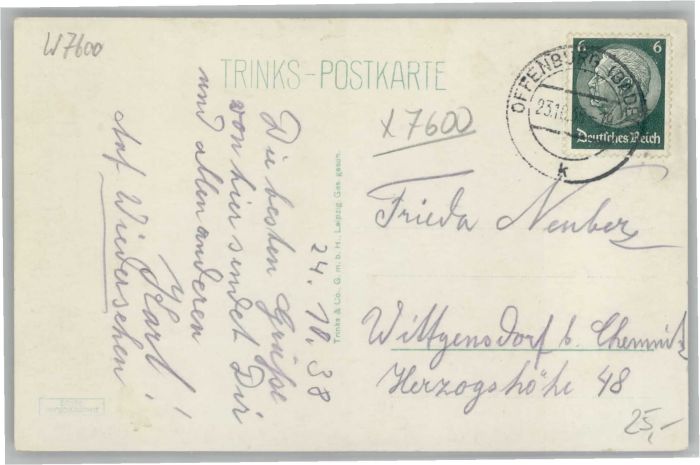 W7600
TRINKS-POSTKARTE
X 7600
6 6
Deutsches Reich
OFFENBURG (BADEN)
23.10.
k
24. 10. 38
Die besten Grüße
von hier sendet Dir
und allen anderen
Karl!
Auf Wiedersehen!
Trinks & Co., G. m. b. H., Leipzig. Ges. gesch.
Frieda Neuber
Wittgensdorf b. Chemnitz
Herzogshöhe 48
25,-